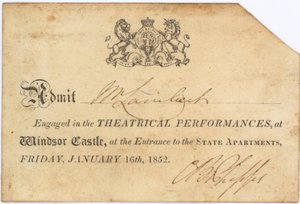 Admit Mr Lambert
Engaged in the THEATRICAL PERFORMANCES, at
Windsor Castle, at the Entrance to the STATE APARTMENTS,
FRIDAY, JANUARY 16th, 1852.